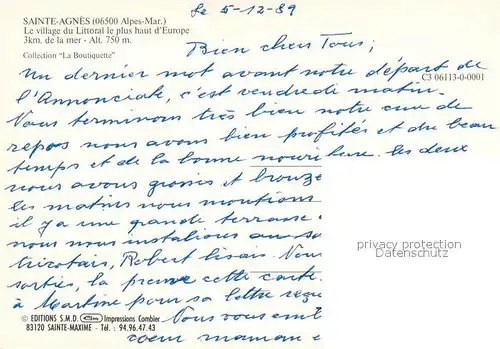 SAINTE-AGNÈS (06500 Alpes-Mar.)
Le village du Littoral le plus haut d'Europe
3km. de la mer - Alt. 750 m.
Collection "La Boutiquette"
Le 5-12-89
Bien chers Tous;
C3 06113-0-0001
Un dernier mot avant notre départ de
l'Annonciade, c'est vendredi matin.
Nous terminons très bien notre cure de
repos nous avons bien profités et du beau
temps et de la bonne nourriture. les deux
nous avons grossis et bronzé
les matins nous montions
il y a une grande terrasse
nous nous installions au so
tricotais, Robert lisais. Nous
sorties, la preuve cette carte.
à Martine pour sa lettre reçu
Nous vous emb
coeur maman e
privacy protection
Datenschutz
© EDITIONS S.M.D. Impressions Combier
83120 SAINTE-MAXIME - Tél : 94.96.47.43